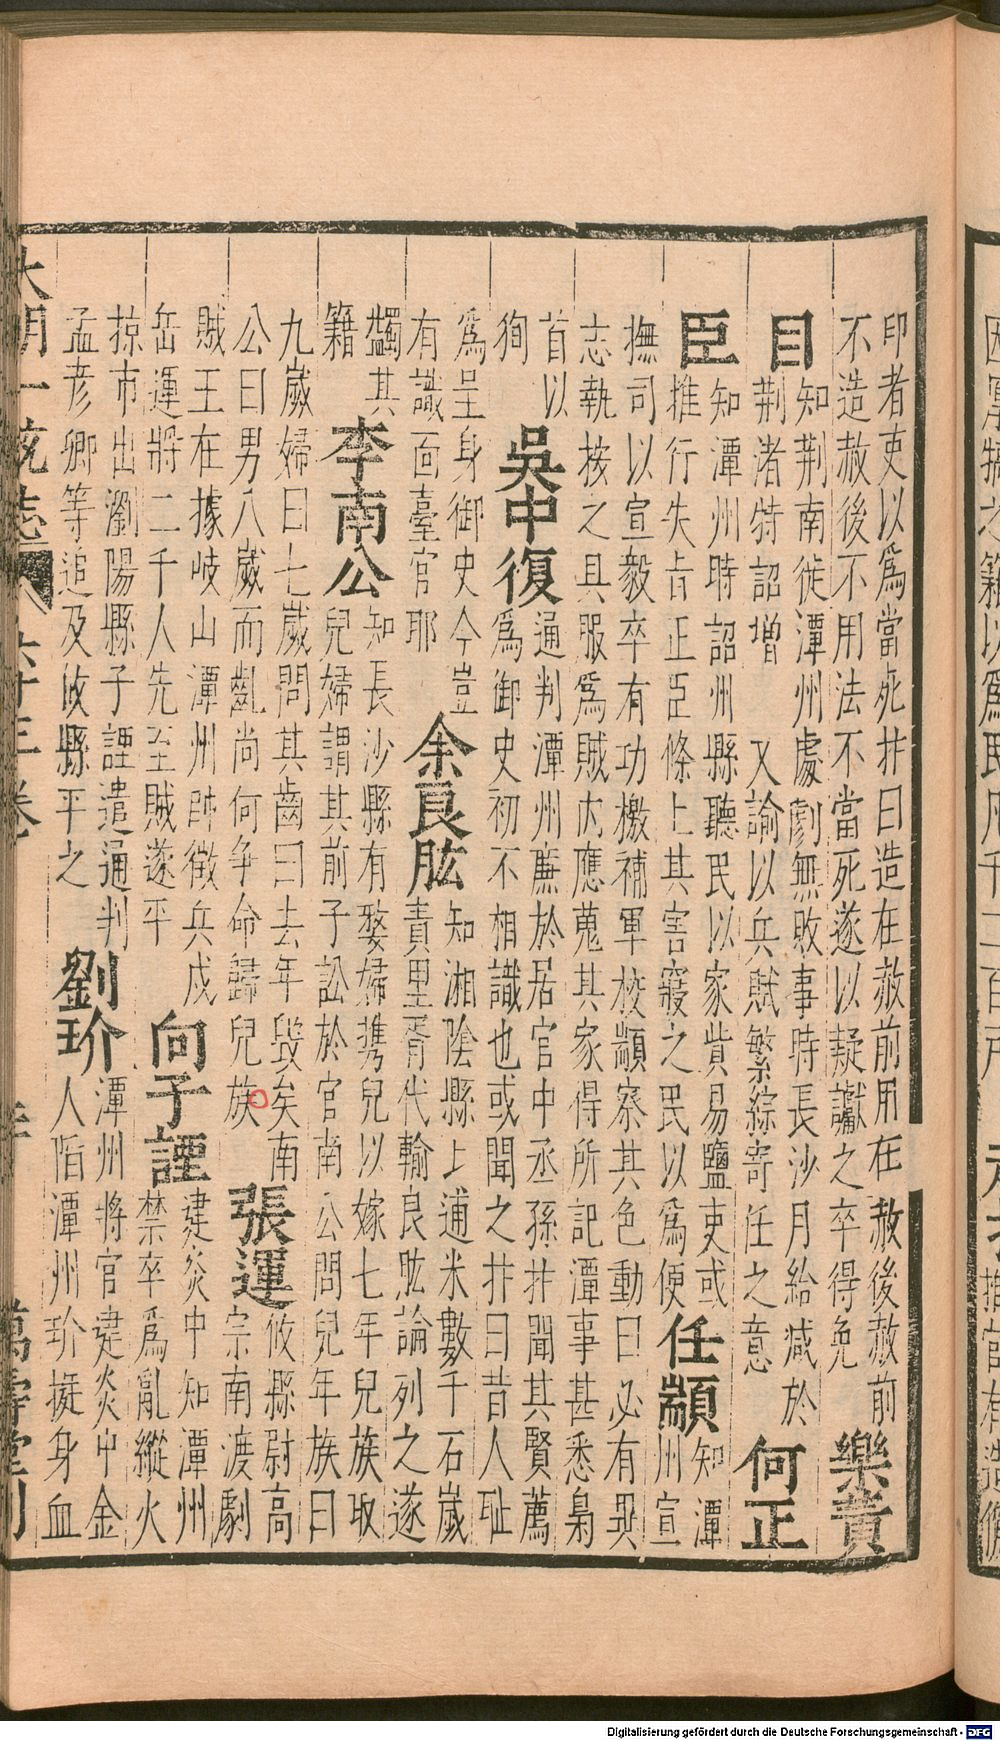 印者吏以爲當死抃曰造在赦前用在赦後赦前
不造赦後不用法不當死遂以疑讞之卒得免
樂黃
目
知荆南徙潭州處劇無敗事時長沙月給减於
荆渚特詔增
又諭以兵賦繁綜寄任之意
何正
臣
知潭州時詔州縣聽民以家貲易鹽吏或
推行失㫖正臣條上其害寢之民以爲便
任顓
知潭
州宣
撫司以宣毅卒有功檄補軍校顓察其色動曰必有異
志執按之具服爲賊内應蒐其家得所記潭事甚悉梟
首以
狥
吳中復
通判潭州廉於居官中丞孫抃聞其賢薦
爲御史初不相識也或聞之抃曰昔人耻
爲呈身御史今豈
有識面臺官耶
余良肱
知湘陰縣上逋米數千石歲
責里胥代輸良肱論列之遂
蠲其
籍
李南公
知長沙縣有嫠婦携兒以嫁七年兒族取
兒婦謂其前子訟於官南公問兒年族曰
九歲婦曰七歲問其齒曰去年毁矣南
公曰男八歲而齓尚何争命歸兒族
張運
攸縣尉高
宗南渡劇
賊王在據岐山潭州帥徵兵戍
岳運將二千人先至賊遂平
向子諲
建炎中知潭州
禁卒爲亂縱火
掠市出瀏陽縣子諲遣通判
孟彦卿等追及攸縣平之
劉玠
潭州將官建炎中金
人䧟潭州玠挺身血
大明一統志
六十三卷
萬壽堂刊